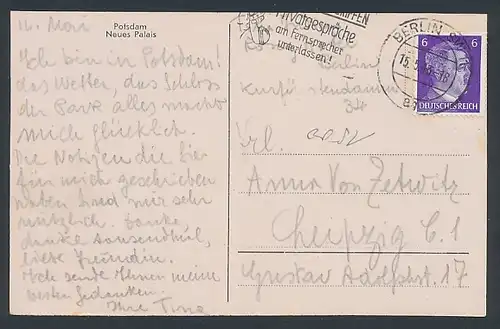 Potsdam
Neues Palais
16. Mai
Ich bin in Potsdam!
das Wetter, das Schloss
der Park alles macht
mich glücklich.
Die Notizen die Sie
für mich geschrieben
haben sind mir sehr
nützlich. Danke,
danke tausendmal,
liebe Freundin.
Ich sende Ihnen meine
besten Gedanken.
Ihre
Privatgespräche
am Fernsprecher
unterlassen!
BERLIN
6 6
DEUTSCHES REICH
Berlin
Kurfürstendamm
34
Frl.
Anna Von Zetwitz
Leipzig C.1
Gustav Adolfstr. 17